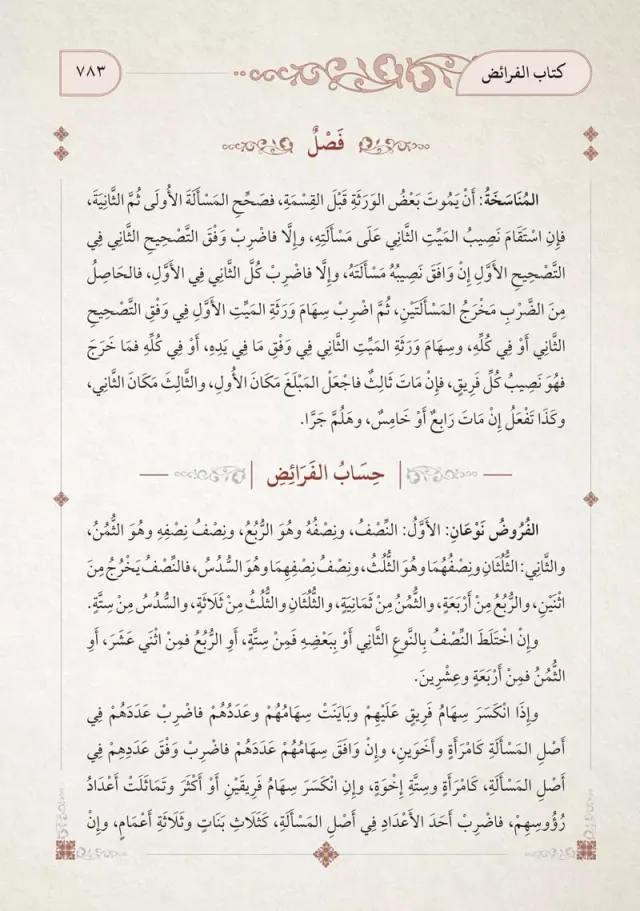 كتاب الفرائض
٧٨٣
فَصْلٌ
المُنَاسَخَةُ: أَنْ يَمُوتَ بَعْضُ الوَرَثَةِ قَبْلَ القِسْمَةِ، فَصَحِّحِ المَسْأَلَةَ الأُولَى ثُمَّ الثَّانِيَةَ،
فإِنِ اسْتَقَامَ نَصِيبُ المَيِّتِ الثَّانِي عَلَى مَسْأَلَتِهِ، وإِلَّا فاضْرِبْ وَفْقَ التَّصْحِيحِ الثَّانِي فِي
التَّصْحِيحِ الأَوَّلِ إِنْ وَافَقَ نَصِيبُهُ مَسْأَلَتَهُ، وإِلَّا فاضْرِبْ كُلَّ الثَّانِي فِي الأَوَّلِ، فالحَاصِلُ
مِنَ الضَّرْبِ مَخْرَجُ المَسْأَلَتَيْنِ، ثُمَّ اضْرِبْ سِهَامَ وَرَثَةِ المَيِّتِ الأَوَّلِ فِي وَفْقِ التَّصْحِيحِ
الثَّانِي أَوْ فِي كُلِّهِ، وسِهَامَ وَرَثَةِ المَيِّتِ الثَّانِي فِي وَفْقِ مَا فِي يَدِهِ، أَوْ فِي كُلِّهِ فمَا خَرَجَ
فهُوَ نَصِيبُ كُلِّ فَرِيقٍ، فإِنْ مَاتَ ثَالِثٌ فاجْعَلِ المَبْلَغَ مَكَانَ الأُولِ، والثَّالِثَ مَكَانَ الثَّانِي،
وكَذَا تَفْعَلُ إِنْ مَاتَ رَابِعٌ أَوْ خَامِسٌ، وهَلُمَّ جَرًّا.
حِسَابُ الفَرَائِضِ
الفُرُوضُ نَوْعَانِ: الأَوَّلُ: النِّصْفُ، ونِصْفُهُ وهُوَ الرُّبُعُ، ونِصْفُ نِصْفِهِ وهُوَ الثُّمُنُ،
والثَّانِي: الثُّلُثَانِ ونِصْفُهُمَا وهُوَ الثُّلُثُ، ونِصْفُ نِصْفِهِمَا وهُوَ السُّدُسُ، فالنِّصْفُ يَخْرُجُ مِنَ
اثْنَيْنِ، والرُّبُعُ مِنْ أَرْبَعَةٍ، والثُّمُنُ مِنْ ثَمَانِيَةٍ، والثُّلُثَانِ والثُّلُثُ مِنْ ثَلَاثَةٍ، والسُّدُسُ مِنْ سِتَّةٍ.
وإِنْ اخْتَلَطَ النِّصْفُ بِالنَّوعِ الثَّانِي أَوْ بِبَعْضِهِ فَمِنْ سِتَّةٍ، أَوِ الرُّبُعُ فمِنْ اثْنَي عَشَرَ، أَوِ
الثُّمُنُ فمِنْ أَرْبَعَةٍ وعِشْرِينَ.
وإِذَا انْكَسَرَ سِهَامُ فَرِيقٍ عَلَيْهِمْ وبَايَنَتْ سِهَامُهُمْ وعَدَدُهُمْ فاضْرِبْ عَدَدَهُمْ فِي
أَصْلِ المَسْأَلَةِ كَامْرَأَةٍ وأَخَوَينِ، وإِنْ وَافَقَ سِهَامُهُمْ عَدَدَهُمْ فاضْرِبْ وَفْقَ عَدَدِهِمْ فِي
أَصْلِ المَسْأَلَةِ، كَامْرَأَةٍ وسِتَّةِ إِخْوَةٍ، وإِنِ انْكَسَرَ سِهَامُ فَرِيقَيْنِ أَوْ أَكْثَرَ وتَمَاثَلَتْ أَعْدَادُ
رُؤُوسِهِمْ، فاضْرِبْ أَحَدَ الأَعْدَادِ فِي أَصْلِ المَسْأَلَةِ، كَثَلَاثِ بَنَاتٍ وثَلَاثَةِ أَعْمَامٍ، وإِنْ